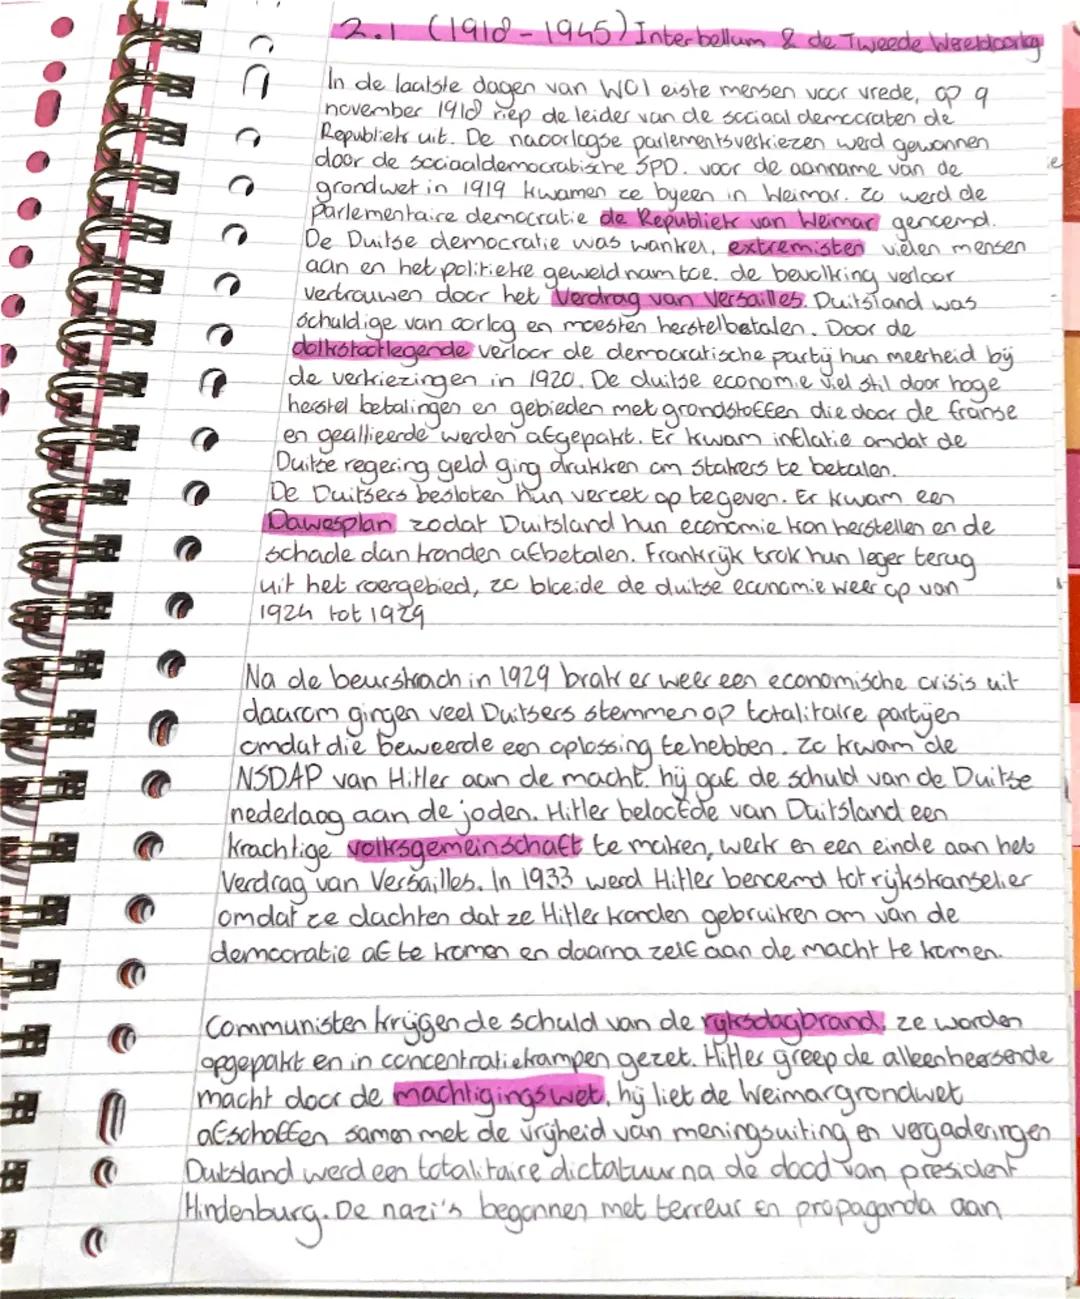 2.1 (1918-1945) Interbellum & de Tweede Wereldoorlog
In de laatste dagen van WO1 eiste mensen voor vrede, op 9
november 1918 riep de leider van de sociaal democraten de
Republiek uit. De naoorlogse parlementsverkiezen werd gewonnen
door de sociaaldemocratische SPD. voor de aanname van de
grondwet in 1919 kwamen ze byeen in Weimar. zo werd de
parlementaire democratie de Republiek van Weimar genoemd.
De Duitse democratie was wankel, extremisten vielen mensen
aan en het politieke geweld nam toe. de bevolking verloor
vertrouwen door het Verdrag van Versailles. Duitsland was
schuldige van oorlog en moesten herstelbetalen. Door de
dolkstootlegende verloor de democratische partij hun meerheid bij
de verkiezingen in 1920. De duitse economie viel stil door hoge
herstel betalingen en gebieden met grondstoffen die door de franse
en geallieerde werden afgepakt. Er kwam inflatie omdat de
Duitse regering geld ging drukken om stakers te betalen.
De Duitsers besloten hun verzet op te geven. Er kwam een
Dawesplan zodat Duitsland hun economie kon herstellen en de
schade dan konden afbetalen. Frankrijk trok hun leger terug
uit het roergebied, zo bloeide de duitse economie weer op van
1924 tot 1929
Na de beurskrach in 1929 brak er weer een economische crisis uit
daarom gingen veel Duitsers stemmen op totalitaire partijen
omdat die beweerde een oplossing te hebben. Zo kwam de
NSDAP van Hitler aan de macht. hij gaf de schuld van de Duitse
nederlaag aan de joden. Hitler beloofde van Duitsland een
krachtige volksgemeinschaft te maken, werk en een einde aan het
Verdrag van Versailles. In 1933 werd Hitler benoemd tot rijkskanselier
omdat ze dachten dat ze Hitler konden gebruiken om van de
democratie af te komen en daarna zelf aan de macht te komen.
Communisten krijgen de schuld van de rijksdagbrand, ze worden
opgepakt en in concentratiekampen gezet. Hitler greep de alleenheersende
macht door de machtigingswet, hij liet de Weimargrondwet
afschaffen samen met de vrijheid van meningsuiting en vergaderingen
Duitsland werd een totalitaire dictatuur na de dood van president
Hindenburg. De nazi's begonnen met terreur en propaganda aan